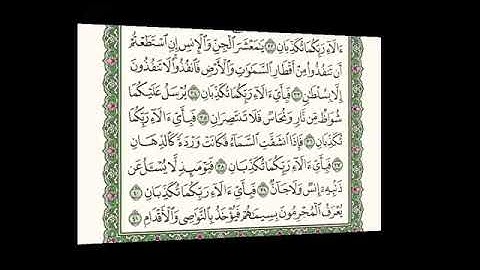 ءَالَآءِ رَبِّكُمَا تُكَذِّبَانِ ٣٢ يَٰمَعْشَرَ ٱلْجِنِّ وَٱلْإِنسِ إِنِ ٱسْتَطَعْتُمْ
أَن تَنفُذُوا۟ مِنْ أَقْطَارِ ٱلسَّمَٰوَٰتِ وَٱلْأَرْضِ فَٱنفُذُوا۟ لَا تَنفُذُونَ
إِلَّا بِسُلْطَٰنٍ ٣٣ فَبِأَىِّ ءَالَآءِ رَبِّكُمَا تُكَذِّبَانِ ٣٤ يُرْسَلُ عَلَيْكُمَا
شُوَاظٌ مِّن نَّارٍ وَنُحَاسٌ فَلَا تَنتَصِرَانِ ٣٥ فَبِأَىِّ ءَالَآءِ رَبِّكُمَا
تُكَذِّبَانِ ٣٦ فَإِذَا ٱنشَقَّتِ ٱلسَّمَآءُ فَكَانَتْ وَرْدَةً كَٱلدِّهَانِ
٣٧ فَبِأَىِّ ءَالَآءِ رَبِّكُمَا تُكَذِّبَانِ ٣٨ فَيَوْمَئِذٍ لَّا يُسْـَٔلُ عَن
ذَنۢبِهِۦٓ إِنسٌ وَلَا جَآنٌّ ٣٩ فَبِأَىِّ ءَالَآءِ رَبِّكُمَا تُكَذِّبَانِ ٤٠
يُعْرَفُ ٱلْمُجْرِمُونَ بِسِيمَٰهُمْ فَيُؤْخَذُ بِٱلنَّوَٰصِى وَٱلْأَقْدَامِ ٤١